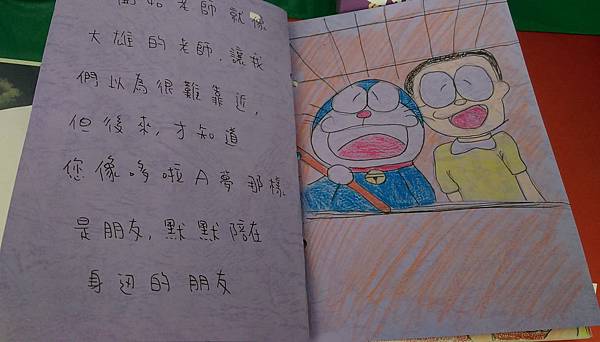 老師就像
大雄的老師,讓我
們以為很難靠近,
但後來,才知道
您像哆啦A夢那樣
是朋友,默默陪在
身边的朋友